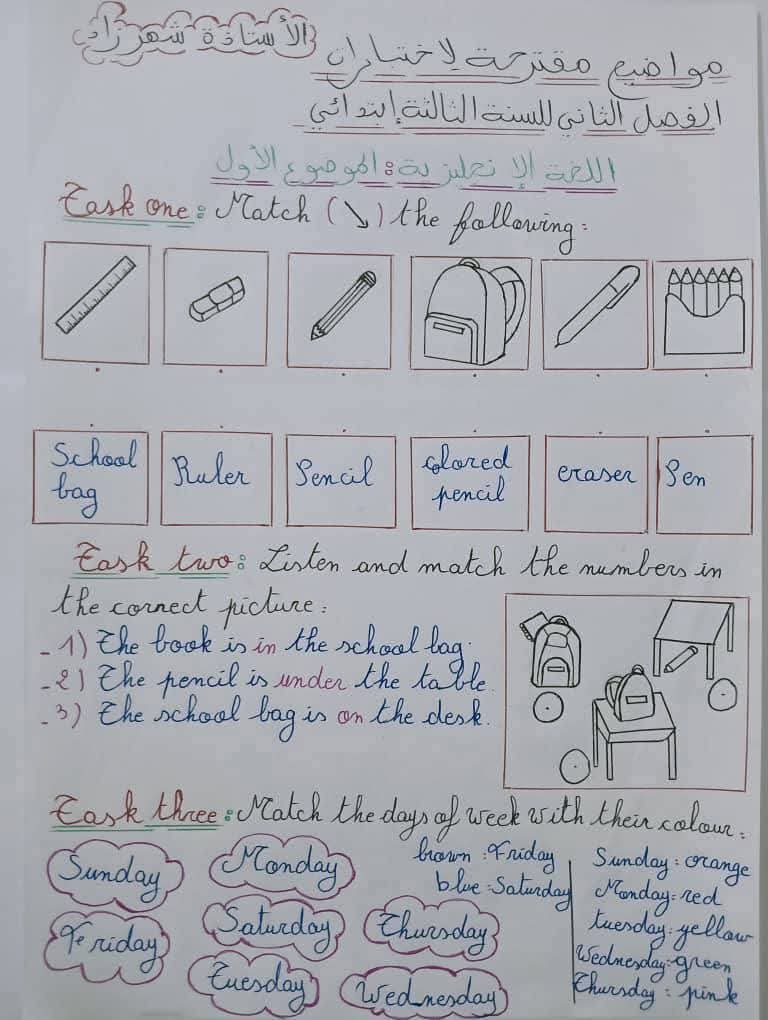 الأستاذة شهرزاد
مواضيع مقترحة لاختباران
الفصل الثاني للسنة الثالثة إبتدائي
اللغة الإنجليزية: الموضوع الأول
Task one: Match (↘) the following:
School bag
Ruler
Pencil
colored pencil
eraser
Pen
Task two: Listen and match the numbers in
the correct picture:
-1) The book is in the school bag.
-2) The pencil is under the table.
-3) The school bag is on the desk.
Task three: Match the days of week with their colour:
Sunday
Monday
Friday
Saturday
Thursday
Tuesday
Wednesday
brown: Friday
blue: Saturday
Sunday: orange
Monday: red
tuesday: yellow
Wednesday: green
Thursday: pink